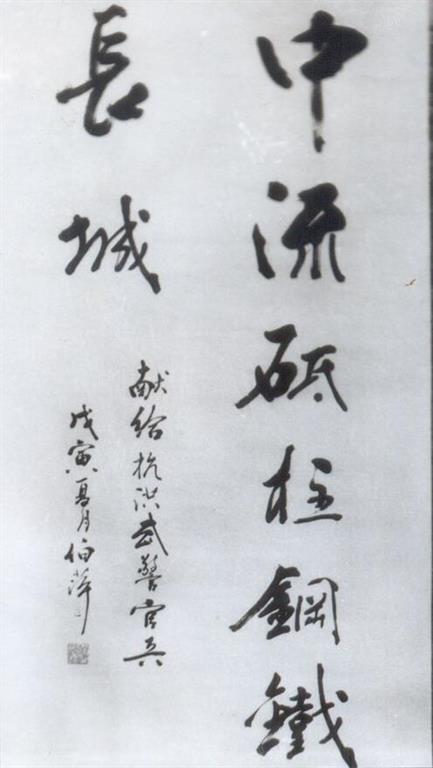 中流砥柱鋼鐵
長城
献给抗洪武警官兵
戊寅夏月伯萍